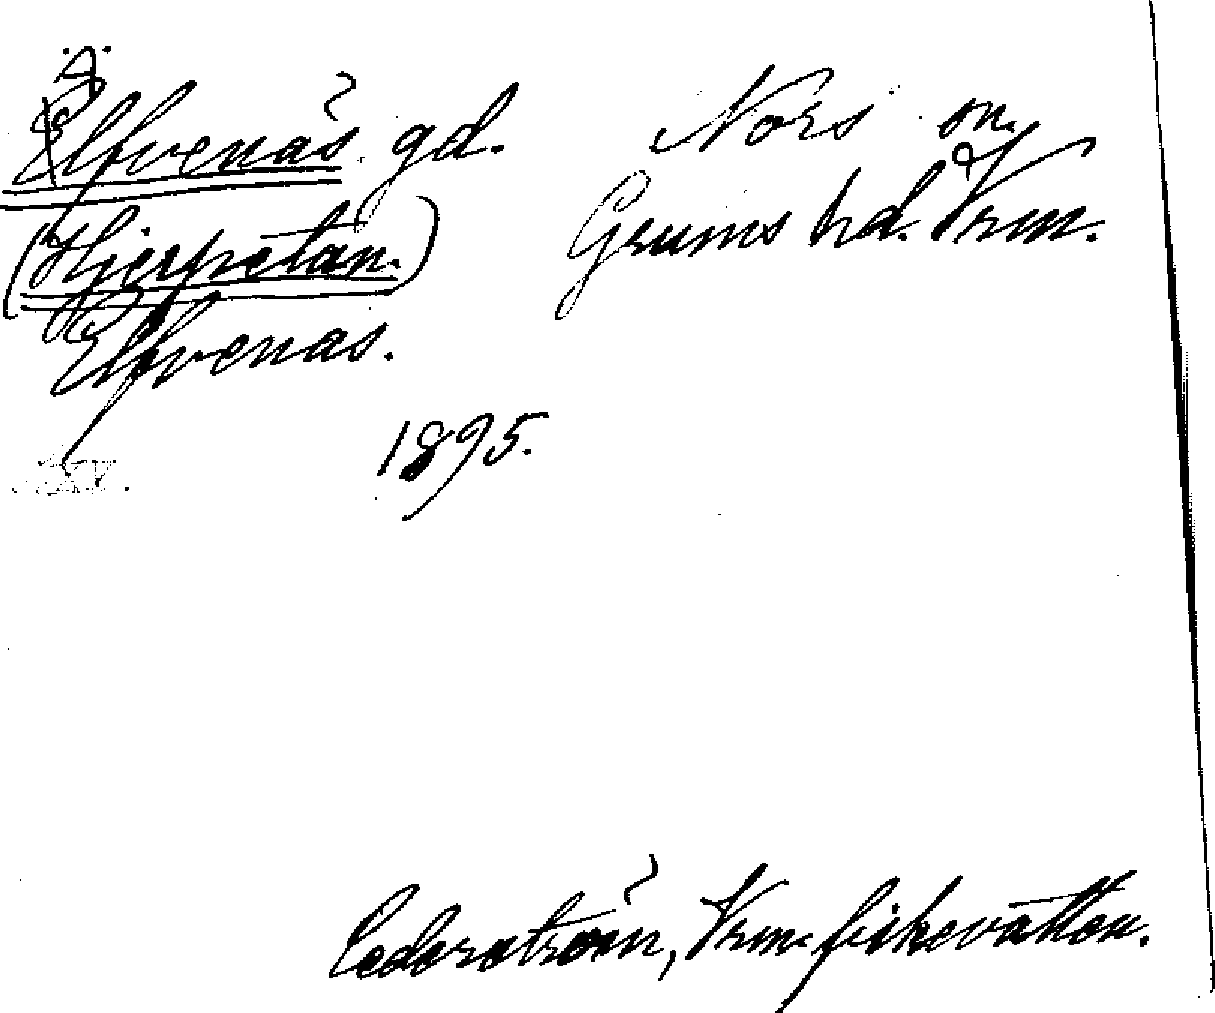 Ä
Elfvenäs gd. Nors sn.
(Hjerpetan.) Grums hd. Vrm.
Elfvenäs.
1895.
Cederström, Vrm. fiskevatten.